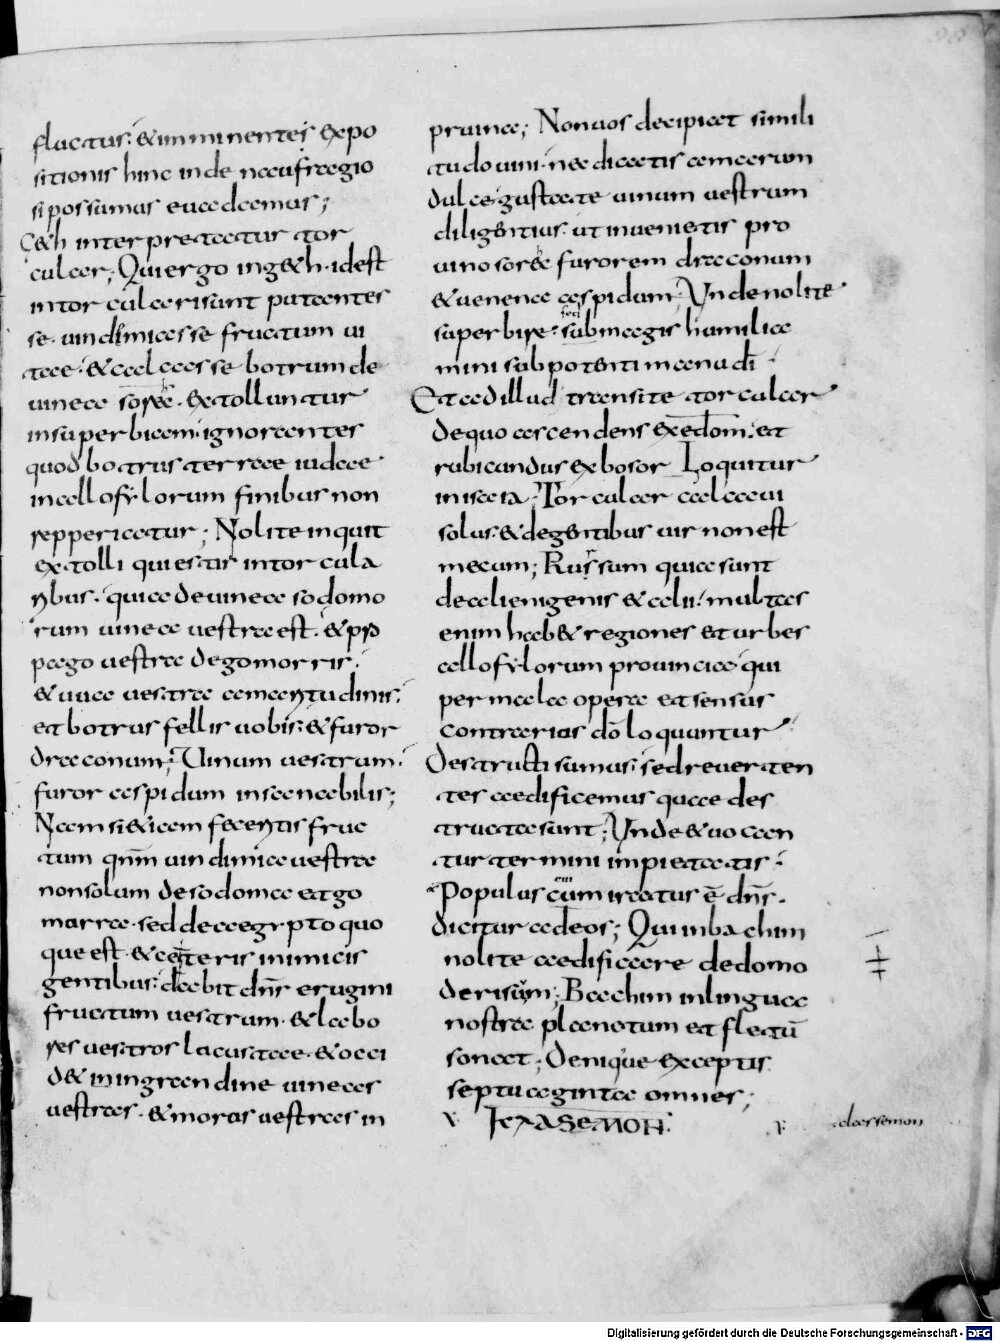 fluctus: & imminentes expo
sitionis hinc inde naufragio
si possumus euadamus;
G&h interpretatur tor
cular; Qui ergo in g&h · idest
in torculari sunt putantes
se uindimiasse fructum ui
tae · & calcasse botrum de
uinea sorec · extolluntur
in superbiam · ignorantes
quod botrus terrae iudae
in allofylorum finibus non
repperiatur; Nolite inquit
extolli qui estis in torcula
ribus · quia de uinea sodomo
rum uinea uestra est · & pro
pago uestra de gomorris ·
& uua uestra amaritudinis ·
et botrus fellis uobis · & furor
draconum; Uinum uestrum ·
furor aspidum insanabilis;
Nam si & iam feceritis fruc
tum qnm uindimia uestra
non solum de sodoma et go
marra · sed de aegypto quo
que est · & ceteris inimicis
gentibus: dabit dns erugini
fructum uestrum · & labo
res uestros lucustae · & occi
d& in grandine uineas
uestras · & moros uestras in
pruina; Non uos decipiat simili
tudo uini · nec dicatis amarum
dulce · gustate uinum uestrum
diligentius · ut inuenietis pro
uino sorec furorem draconum
& uenena aspidum; Unde nolite
superbire · sed sub magis humilia
mini sub potenti manu di ·
Et ad illud transite torcular
de quo ascendens ex edom · et
rubicundus ex bosor Loquitur
in isaia; Torcular calcaui
solus · & de gentibus uir non est
mecum; Rursum quia sunt
de alienigenis & alii · multas
enim hab& regiones et urbes
allofylorum prouinciae · qui
per mala opera et sensus
contrarios do loquuntur
Destructi sumus · sed reuerten
tes aedificemus quae des
tructa sunt; Unde & uocan
tur termini impietatis ·
Populus cum eni iratus e dns ·
dicitur ad eos; Qui in bachim
nolite aedificare de domo
derisum; Bachim in lingua
nostra planctum et fletu
sonat; Denique exceptis
septuaginta omnes;